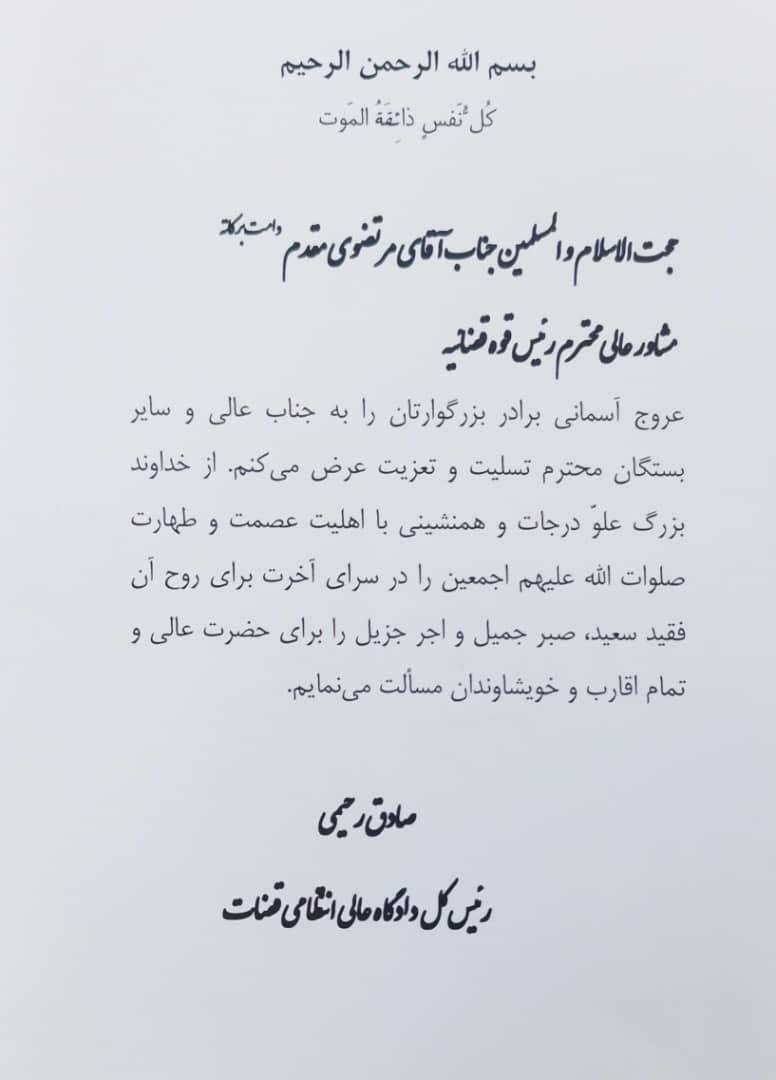 بسم الله الرحمن الرحیم
کُل ُّنَفسٍ ذائِقَةُ المَوت
حجت الاسلام و المسلمین جناب آقای مرتضوی مقدم دامت برکاته
مشاور عالی محترم رئیس قوه قضائیه
عروج آسمانی برادر بزرگوارتان را به جناب عالی و سایر
بستگان محترم تسلیت و تعزیت عرض می‌کنم. از خداوند
بزرگ علوّ درجات و همنشینی با اهلیت عصمت و طهارت
صلوات الله علیهم اجمعین را در سرای آخرت برای روح آن
فقید سعید، صبر جمیل و اجر جزیل را برای حضرت عالی و
تمام اقارب و خویشاوندان مسألت می‌نمایم.
صادق رحیمی
رئیس کل دادگاه عالی انتظامی قضات